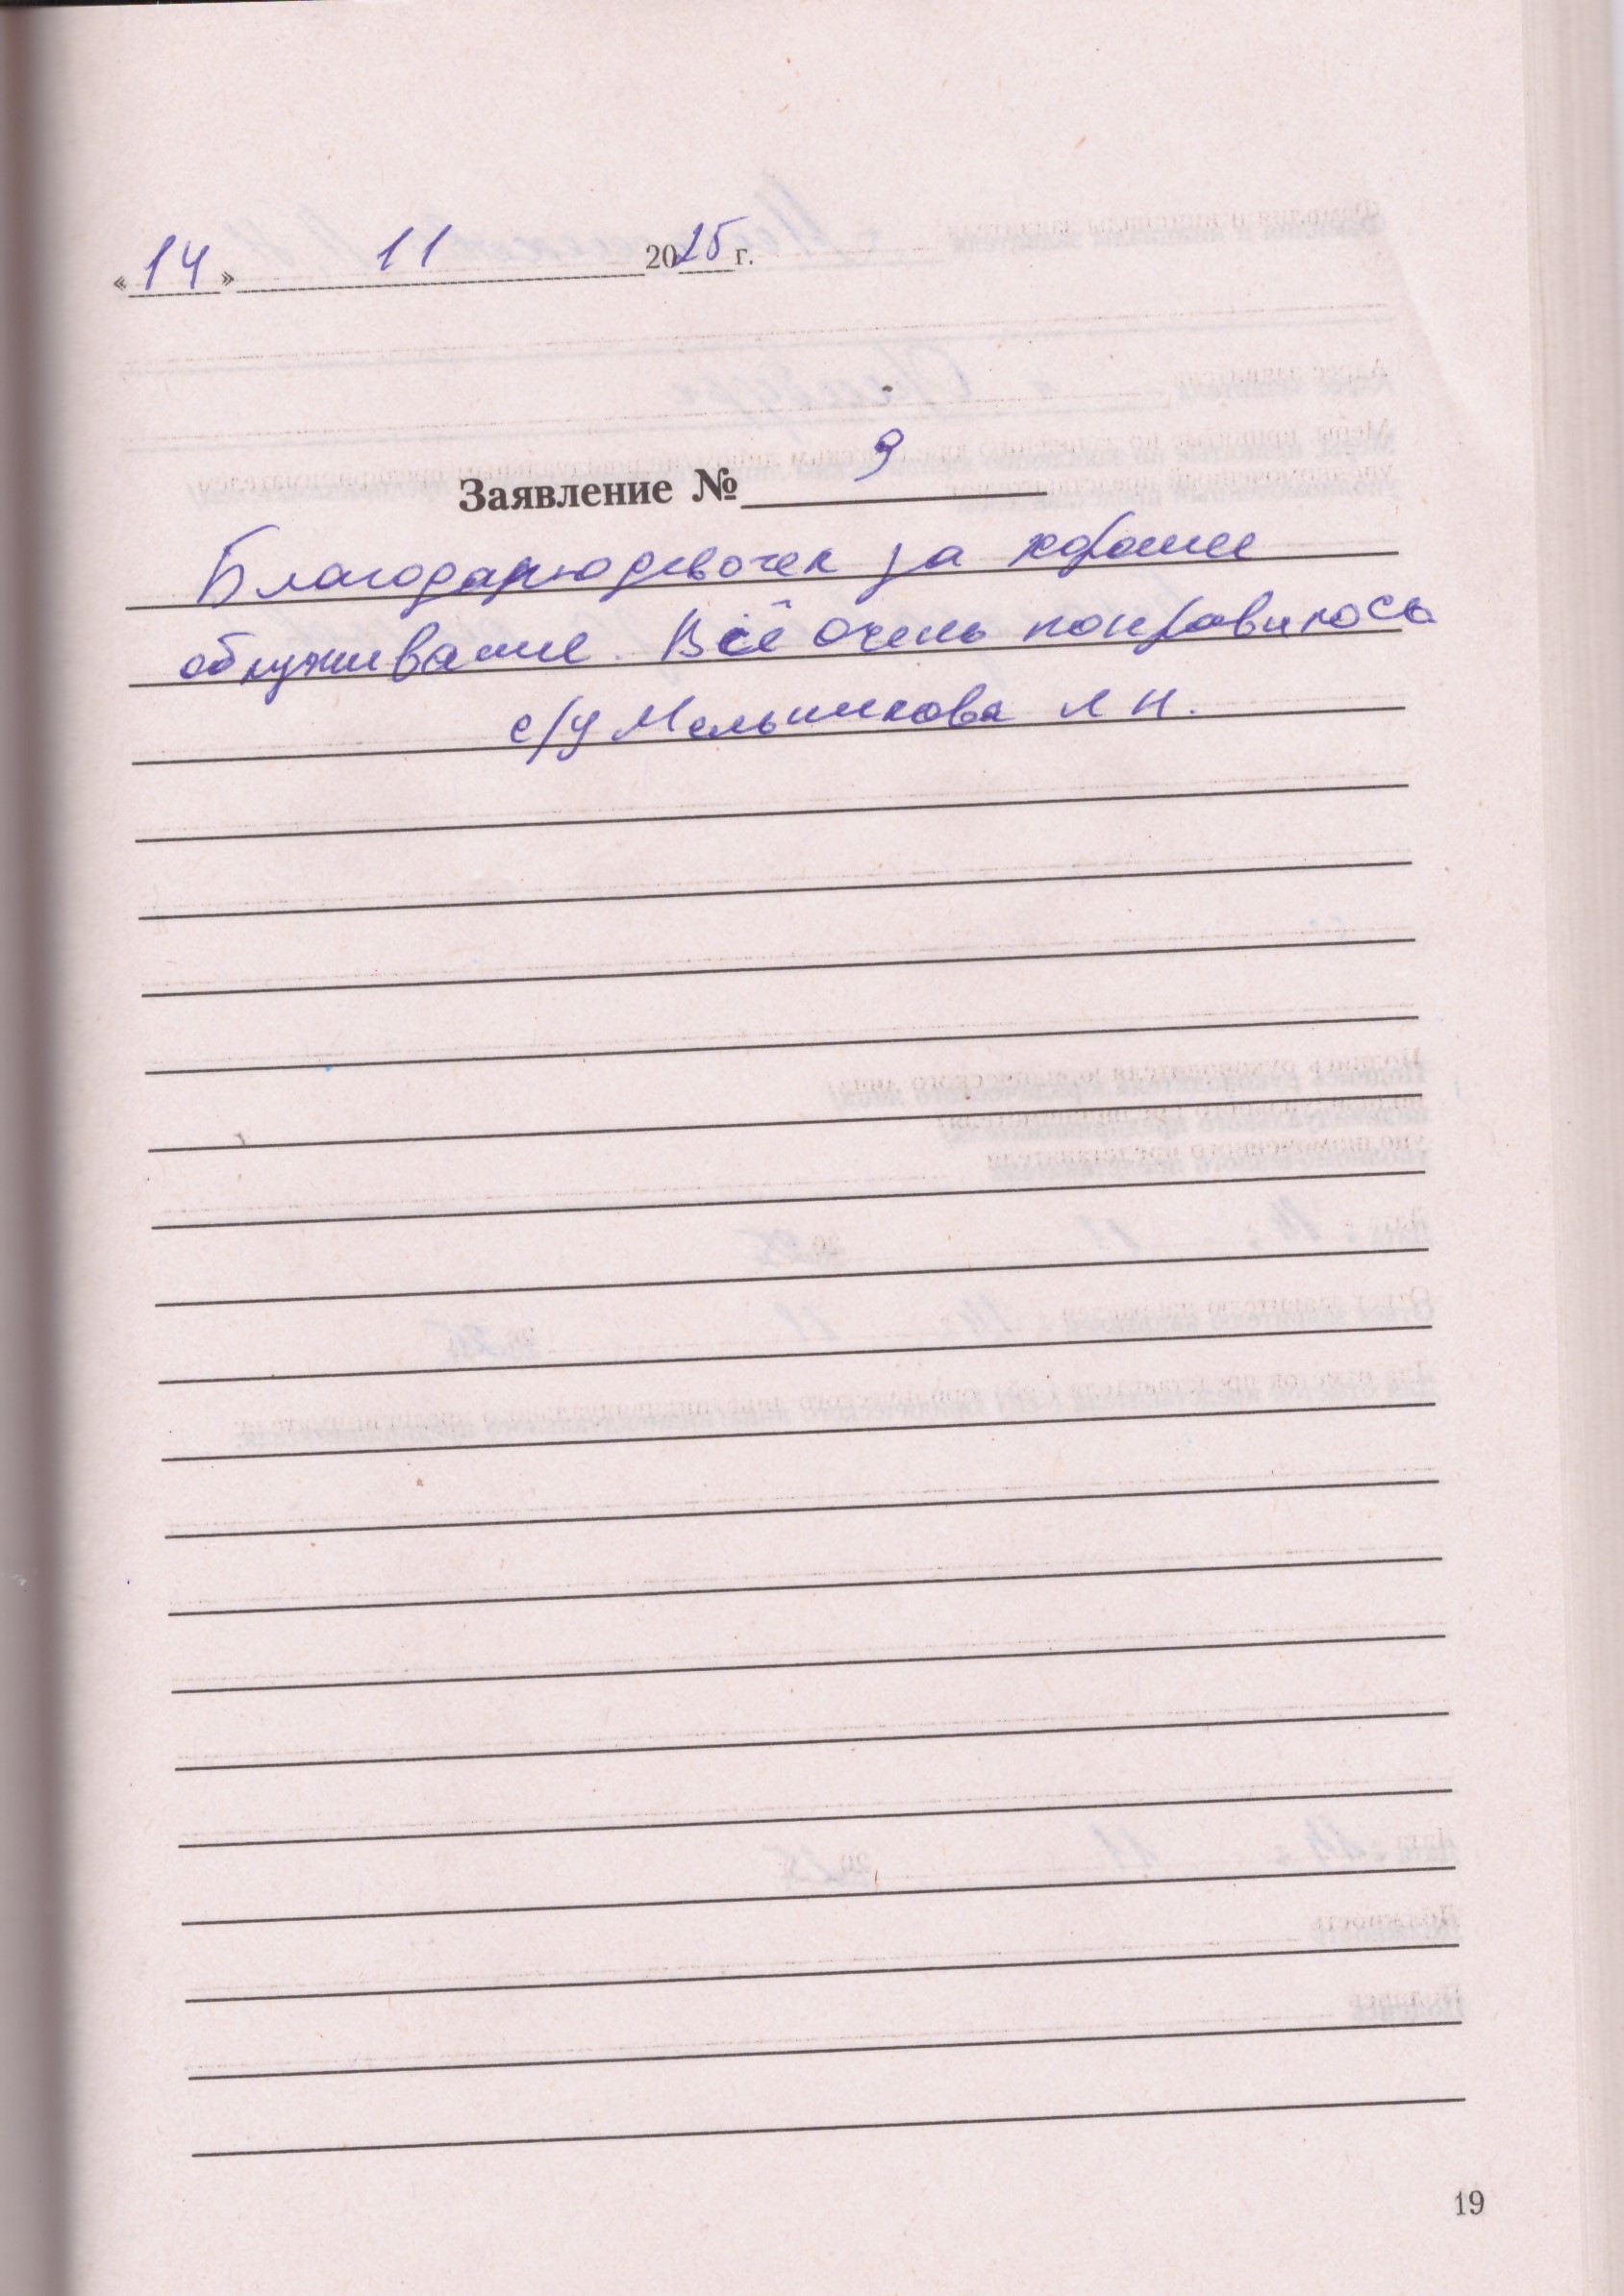 «14» 11 2025 г.
Заявление № 9
Благодарю девочек за хорошее
обслуживание. Всё очень понравилось
с/у Мельникова Л Н.
19